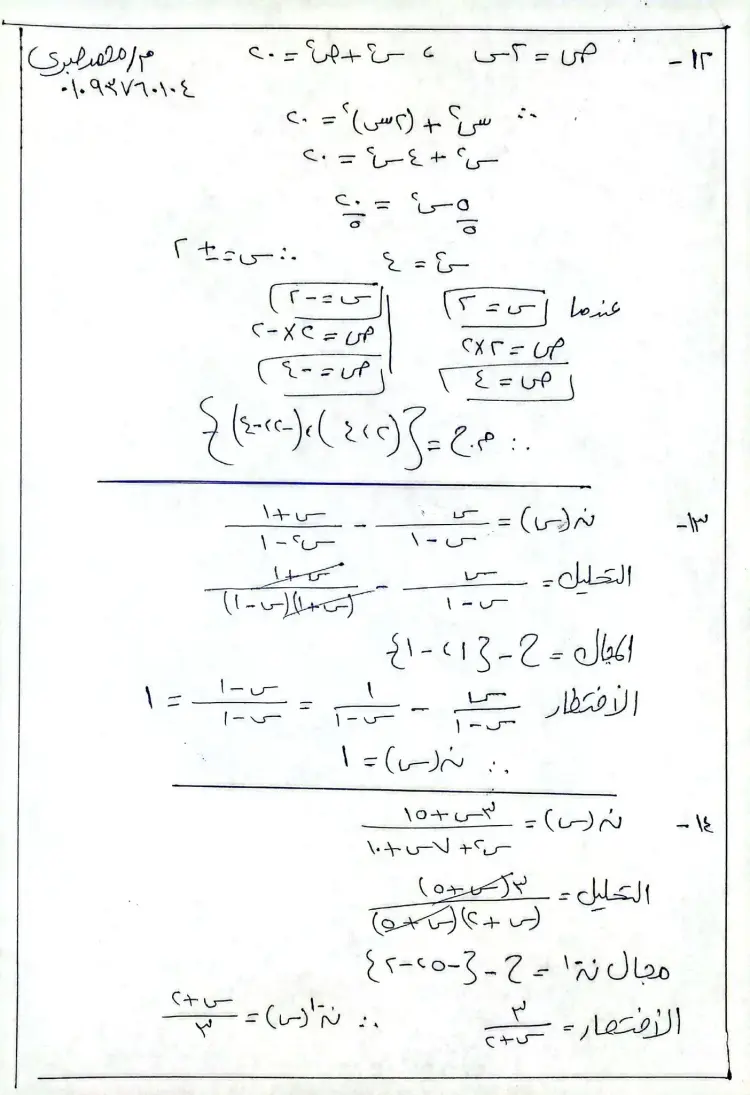 م/محمد صبري
٠١٠٩٣٧٦٠١٠٤
١٢- ص = ٢س ، س٢ + ص٢ = ٢٠
∴ س٢ + (٢س)٢ = ٢٠
س٢ + ٤س٢ = ٢٠
٥س٢/٥ = ٢٠/٥
س٢ = ٤ ∴ س = ± ٢
عندما س = ٢ | س = -٢
ص = ٢×٢ | ص = ٢×-٢
ص = ٤ | ص = -٤
∴ م.ح = {(٢،٤)،(-٢،-٤)}
١٣- ن(س) = س/(س-١) - (س+١)/(س٢-١)
التحليل = س/(س-١) - (س+١)/((س+١)(س-١))
المجال = ح - {١، -١}
الأختطار س/(س-١) - ١/(س-١) = (س-١)/(س-١) = ١
∴ ن(س) = ١
١٤- ن(س) = (٣س+١٥)/(س٢+٧س+١٠)
التحليل = ٣(س+٥)/((س+٢)(س+٥))
مجال ن-١ = ح - {-٥، -٢}
الأختصار = ٣/(س+٢) ∴ ن-١(س) = (س+٢)/٣